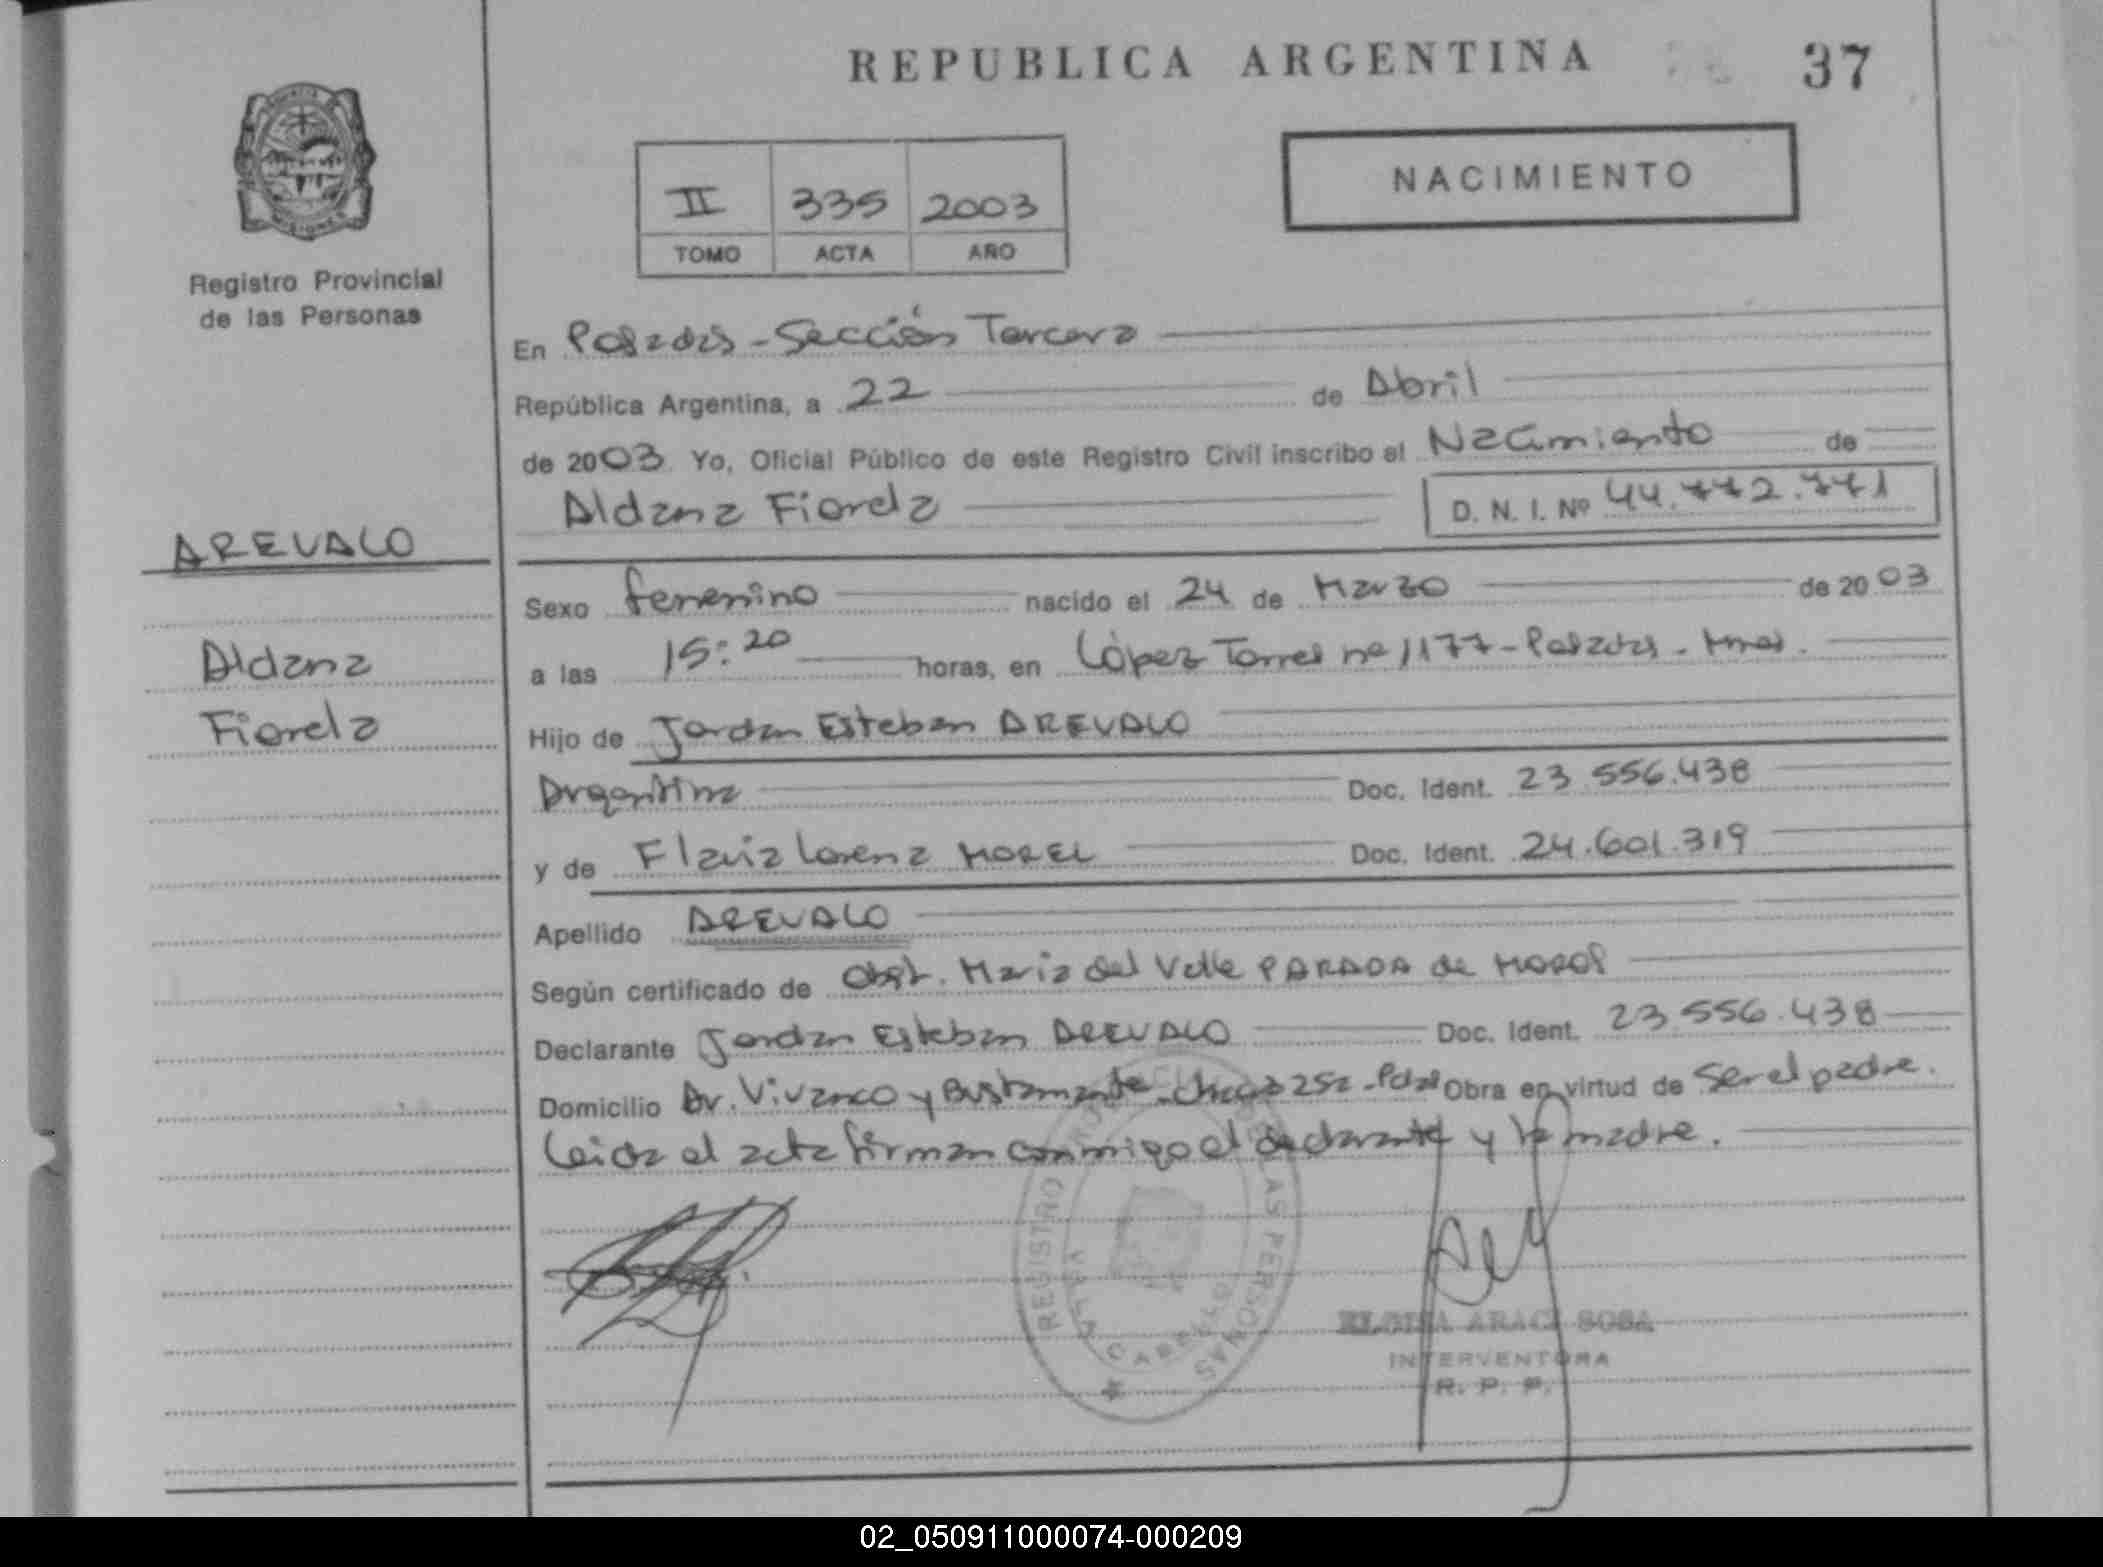 REPUBLICA ARGENTINA 37
II 335 2003
TOMO ACTA AÑO
NACIMIENTO
Registro Provincial
de las Personas
En Posadas - Sección Tercera
República Argentina, a 22 de Abril
de 2003 Yo, Oficial Público de este Registro Civil inscribo el Nacimiento de
Aldana Fiorela D. N. I. Nº 44.772.771
AREVALO
Aldana
Fiorela
Sexo femenino nacido el 24 de Marzo de 2003
a las 15:20 horas, en López Torres nº 1177 - Posadas - Mnes.
Hijo de Jordan Esteban AREVALO
Argentina Doc. Ident. 23.556.438
y de Flavia Lorena MOREL Doc. Ident. 24.601.319
Apellido AREVALO
Según certificado de Obst. Maria del Valle PARADA de
Declarante Jordan Esteban AREVALO Doc. Ident. 23.556.438
Domicilio Av. Vivanco y Bustamante 252 - Pdas Obra en virtud de Ser el padre.
Leida el acta firman conmigo el declarante y la madre.
REGISTRO DE LAS PERSONAS
VILLA CABELLO
ARACI SOSA
INTERVENTORA
R. P. P.
02_050911000074-000209